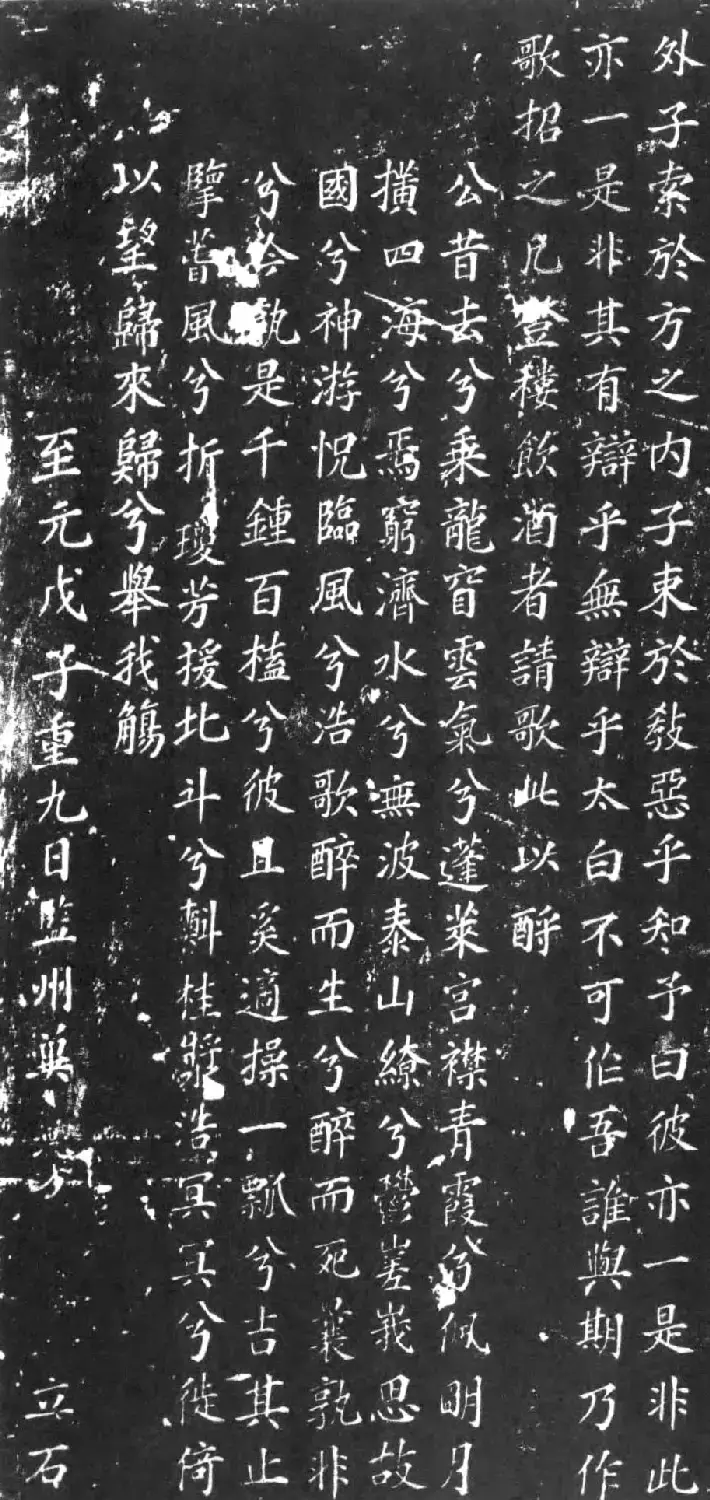 外子索於方之内子束於教惡乎知予曰彼亦一是非此
亦一是非其有辯乎無辯乎太白不可作吾誰與期乃作
歌招之凡登樓飲酒者請歌此以酹
公昔去兮乘龍窅雲氣兮蓬萊宫襟青霞兮佩明月
擴四海兮焉窮濟水兮無波泰山繚兮鬱嵳峩思故
國兮神游怳臨風兮浩歌醉而生兮醉而死曩孰非
兮今孰是千鍾百榼兮彼且奚適操一瓢兮吉其止
擥蕾風兮折瓊芳援北斗兮㪺桂漿浩冥冥兮徙倚
以望歸來歸兮舉我觴
至元戊子重九日監州 立石